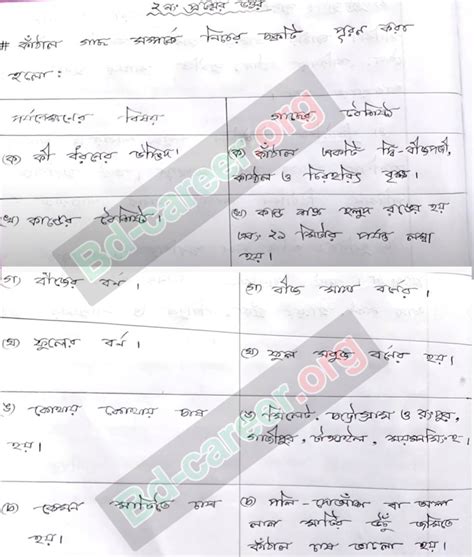 ২ নং প্রশ্নের উত্তর
# কাঁঠাল গাছ সম্পর্কে নিচের ছকটি পূরণ করা
হলো:
পর্যবেক্ষণের বিষয়
গাছের বৈশিষ্ট্য
(ক) কী ধরনের উদ্ভিদ।
ক) কাঁঠাল একটি দ্বি-বীজপত্রী,
কাষ্ঠল ও চিরহরিৎ বৃক্ষ।
(খ) কান্ডের বৈশিষ্ট্য।
খ) কান্ড শক্ত হলুদ রঙের হয়
এবং ২১ মিটার পর্যন্ত লম্বা
হয়।
গ) বীজের বর্ণ।
গ) বীজ সাদা বর্ণের।
(ঘ) ফুলের বর্ণ।
(ঘ) ফুল সবুজ বর্ণের হয়।
ঙ) কোথায় কোথায় চাষ
হয়।
ঙ) সিলেট, চট্টোগ্রাম ও রংপুর,
গাজীপুর, টাঙ্গাইল, ময়মনসিংহ।
(চ) কেমন মাটিতে চাষ
হয়।
চ) পলি-দোআঁশ বা অল্প
লাল মাটির উঁচু জমিতে
কাঁঠাল চাষ ভালো হয়।
Bd-career.org
Bd-career.org